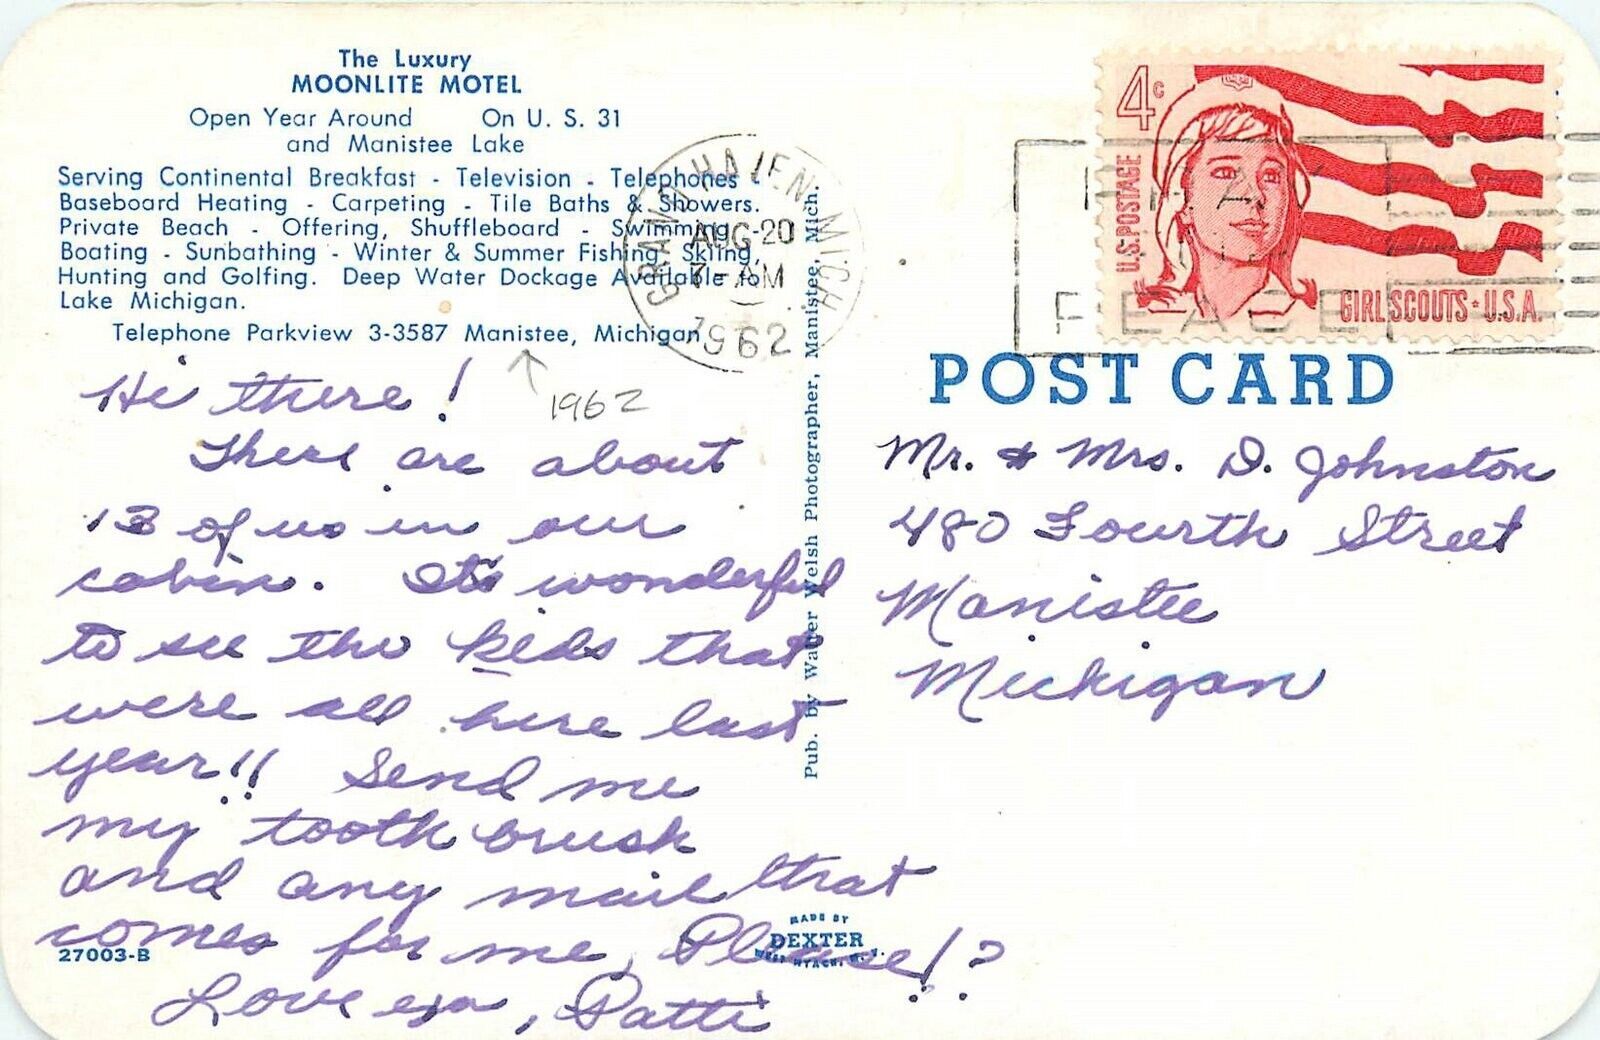 The Luxury
MOONLITE MOTEL
Open Year Around On U. S. 31
and Manistee Lake
Serving Continental Breakfast - Television - Telephones -
Baseboard Heating - Carpeting - Tile Baths & Showers.
Private Beach - Offering, Shuffleboard - Swimming -
Boating - Sunbathing - Winter & Summer Fishing, Skiing,
Hunting and Golfing. Deep Water Dockage Available to
Lake Michigan.
Telephone Parkview 3-3587 Manistee, Michigan
1962
Hi there!
There are about
13 of us in our
cabin. It's wonderful
to see the kids that
were all here last
year!! Send me
my tooth brush
and any mail that
comes for me, Please!?
Love ya, Patti
27003-B
MADE BY
DEXTER
WEST NYACK, N. Y.
Pub. by Walter Welsh Photographer, Manistee, Mich.
GRAND HAVEN MICH
AUG 20
7 - AM
1962
PRAY
FOR
PEACE
4c
U.S. POSTAGE
GIRL SCOUTS ★ U.S.A.
POST CARD
Mr. & Mrs. D. Johnston
480 Fourth Street
Manistee
Michigan